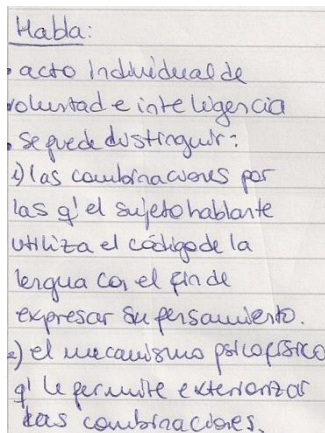 Habla:
• acto individual de
voluntad e inteligencia
• se puede distinguir:
1) las combinaciones por
las q' el sujeto hablante
utiliza el código de la
lengua con el fin de
expresar su pensamiento.
2) el mecanismo psicofísico
q' le permite exteriorizar
esas combinaciones.